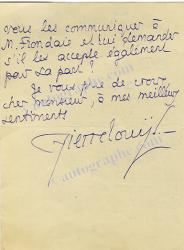 vous les communiquer à
M. Frondaie et lui demander
s'il les accepte également
pour sa part ?
Je vous prie de croire,
cher monsieur, à mes meilleurs
sentiments
Pierre Louÿs
autographe.com